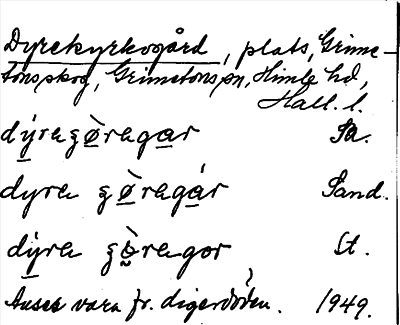 Dyrekyrkogård, plats, Grime-
tonskog, Grimetons sn, Himle hd,
Hall. l.
dyragøragar Sa.
dyra gøragár Sand.
dyra gøragor St.
Anses vara fr. digerdöden. 1949.